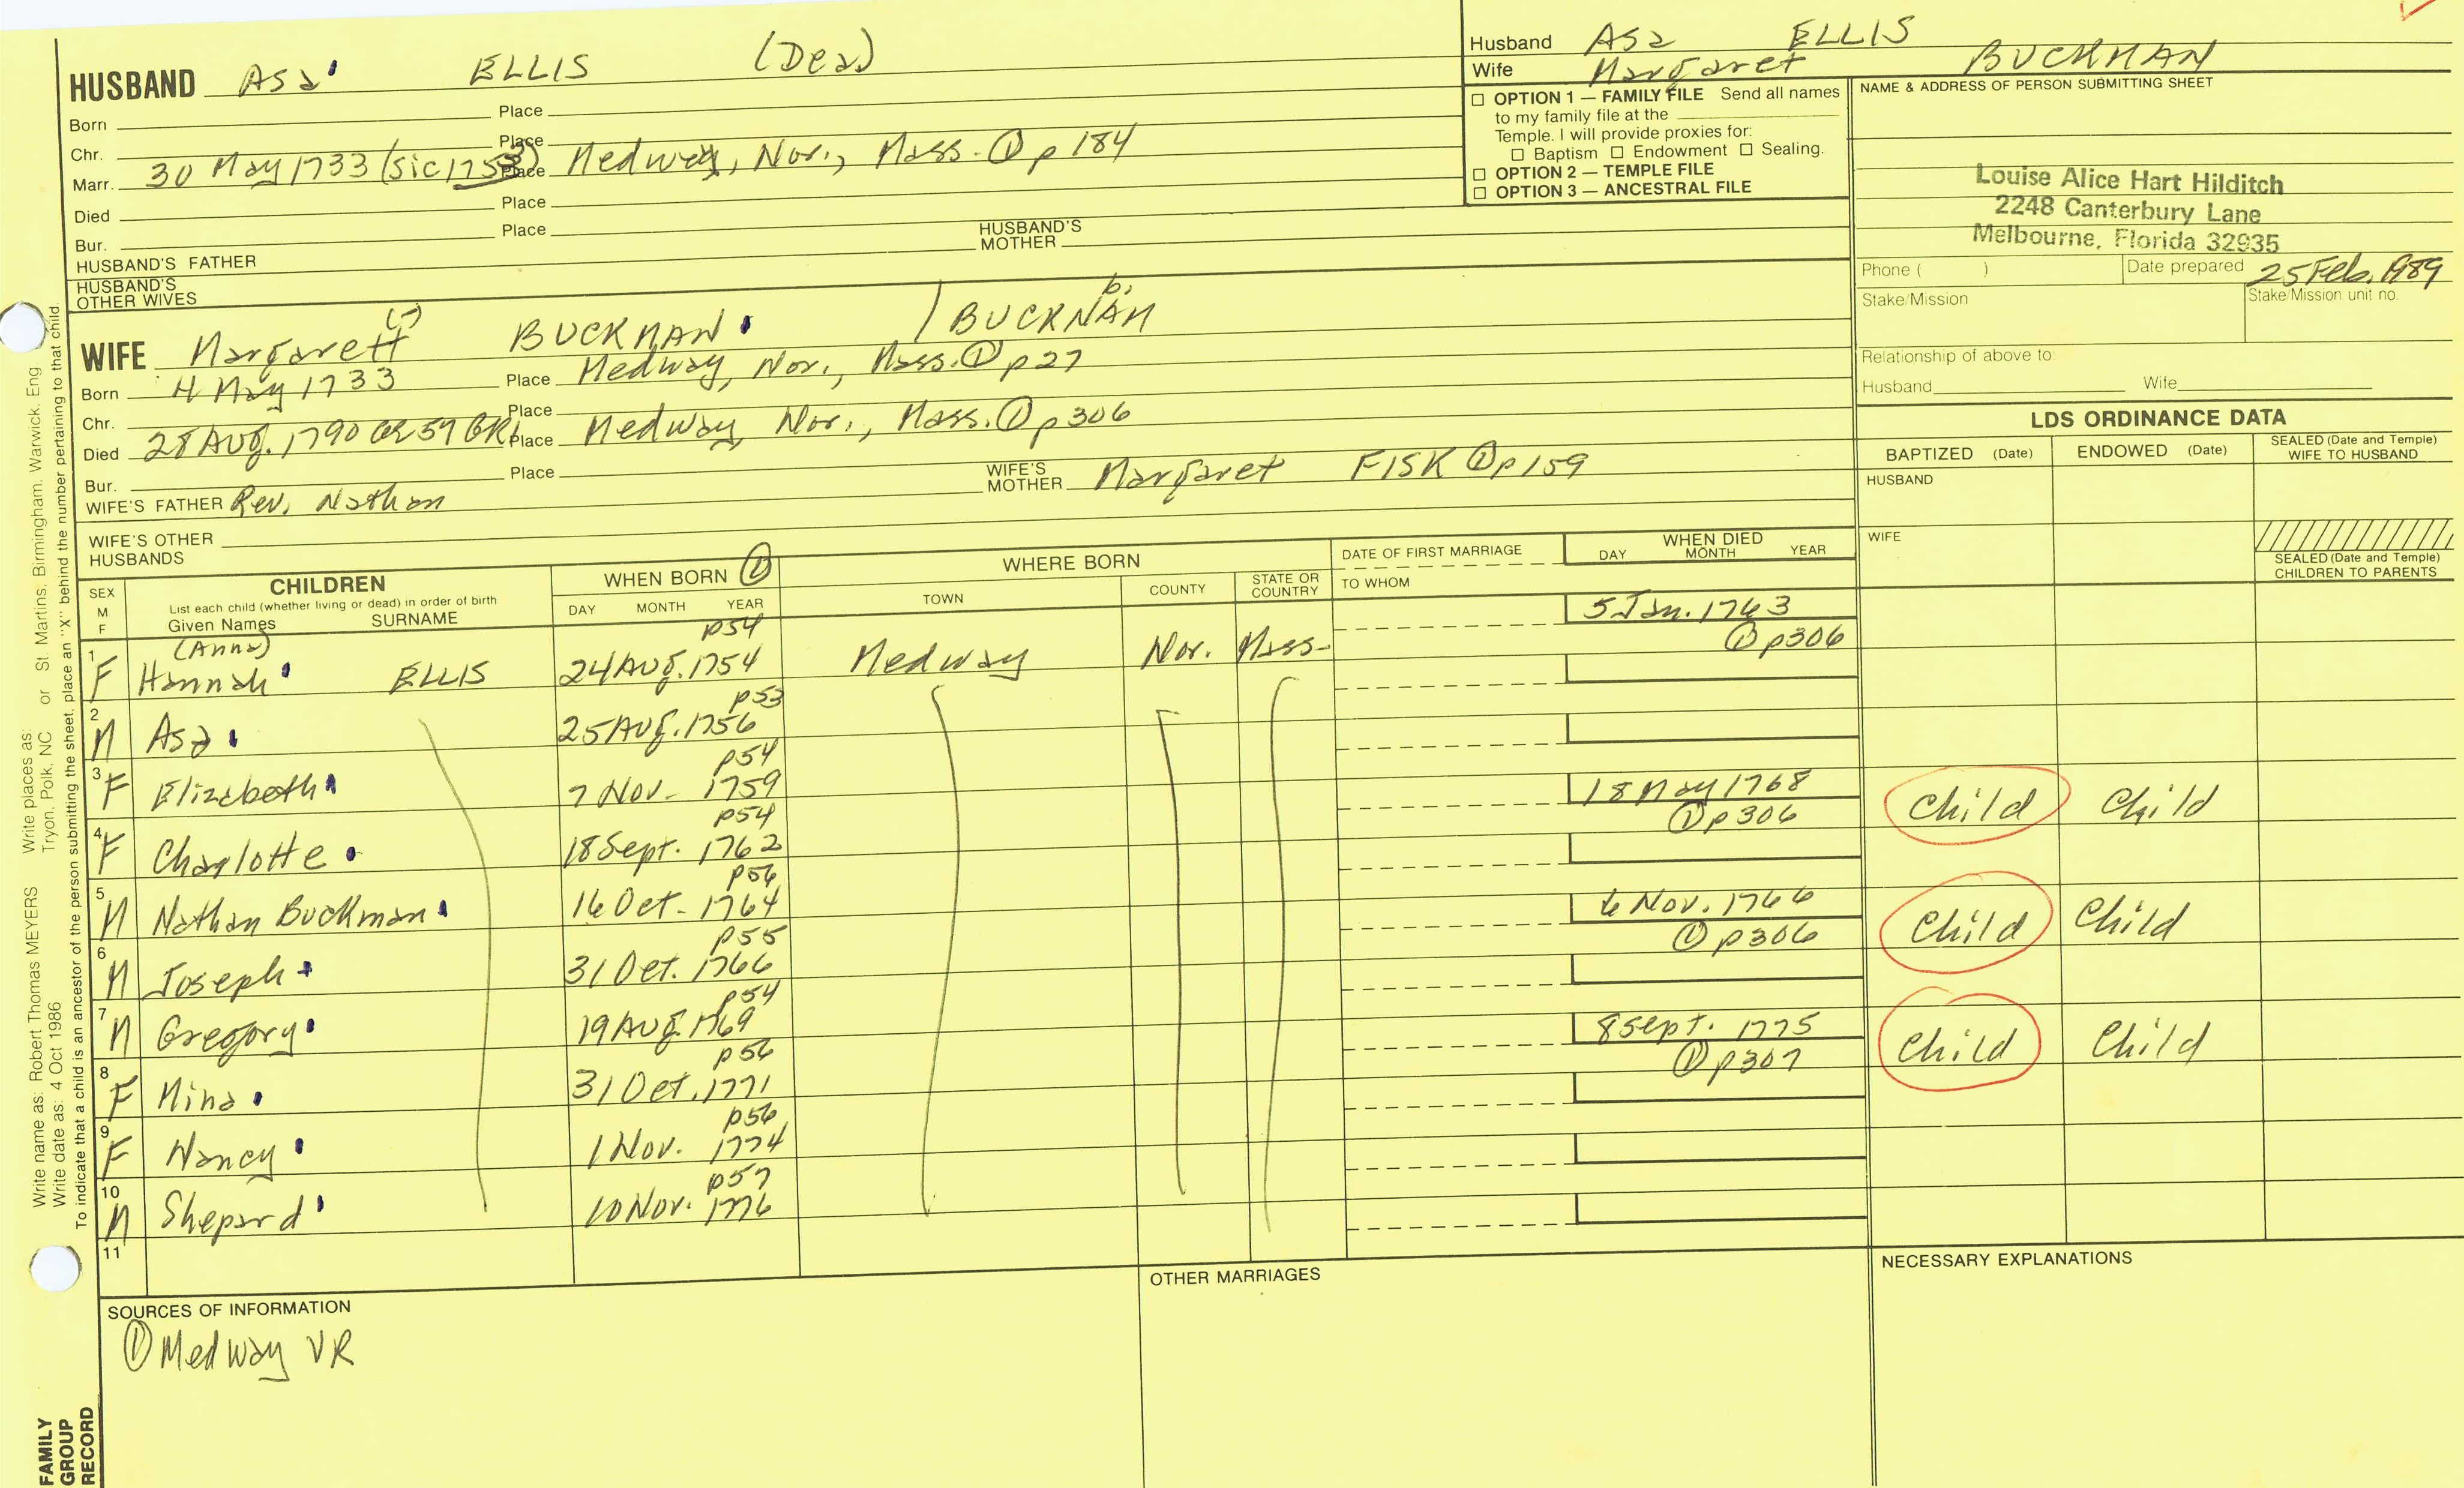 HUSBAND Asa ELLIS (Dea)
Born Place
Chr. Place
Marr. 30 May 1733 (sic 1753) Place Medway, Nor., Mass. ① p 184
Died Place
Bur. Place
HUSBAND'S FATHER HUSBAND'S MOTHER
HUSBAND'S OTHER WIVES
Husband Asa ELLIS
Wife Margaret BUCKMAN
☐ OPTION 1 — FAMILY FILE Send all names
to my family file at the
Temple. I will provide proxies for:
☐ Baptism ☐ Endowment ☐ Sealing.
☐ OPTION 2 — TEMPLE FILE
☐ OPTION 3 — ANCESTRAL FILE
NAME & ADDRESS OF PERSON SUBMITTING SHEET
Louise Alice Hart Hilditch
2248 Canterbury Lane
Melbourne, Florida 32935
Phone ( ) Date prepared 25 Feb. 1989
Stake/Mission Stake/Mission unit no.
Relationship of above to:
Husband Wife
b.
WIFE Margarett (-) BUCKMAN / BUCKNAM
Born 4 May 1733 Place Medway, Nor., Mass. ① p 27
Chr. Place
Died 28 Aug. 1790 ae 57 GR1 Place Medway, Nor., Mass. ① p 306
Bur. Place
WIFE'S FATHER Rev. Nathan WIFE'S MOTHER Margaret FISK ① p 159
WIFE'S OTHER HUSBANDS
LDS ORDINANCE DATA
BAPTIZED (Date) ENDOWED (Date) SEALED (Date and Temple) WIFE TO HUSBAND
HUSBAND
WIFE
SEALED (Date and Temple) CHILDREN TO PARENTS
SEX M F
CHILDREN
List each child (whether living or dead) in order of birth
Given Names SURNAME
WHEN BORN ①
DAY MONTH YEAR
WHERE BORN
TOWN COUNTY STATE OR COUNTRY
DATE OF FIRST MARRIAGE
TO WHOM
WHEN DIED
DAY MONTH YEAR
(Anna) p54 5 Jan. 1763
1 F Hannah ELLIS 24 Aug. 1754 Medway Nor. Mass. ① p306
p53
2 M Asa 25 Aug. 1756
p54
3 F Elizabeth 7 Nov. 1759 18 May 1768 Child Child
p54 ① p 306
4 F Charlotte 18 Sept. 1762
p56
5 M Nathan Buckman 16 Oct. 1764 6 Nov. 1766 Child Child
p55 ① p306
6 M Joseph 31 Oct. 1766
p54
7 M Gregory 19 Aug. 1769 8 Sept. 1775 Child Child
p56 ① p307
8 F Mina 31 Oct. 1771
p56
9 F Nancy 1 Nov. 1774
p57
10 M Shepard 10 Nov. 1776
11
SOURCES OF INFORMATION
① Medway VR
OTHER MARRIAGES
NECESSARY EXPLANATIONS
Write name as: Robert Thomas MEYERS Write places as: Tryon, Polk, NC or St. Martins, Birmingham, Warwick, Eng.
Write date as: 4 Oct 1986
To indicate that a child is an ancestor of the person submitting the sheet, place an "X" behind the number pertaining to that child.
FAMILY
GROUP
RECORD